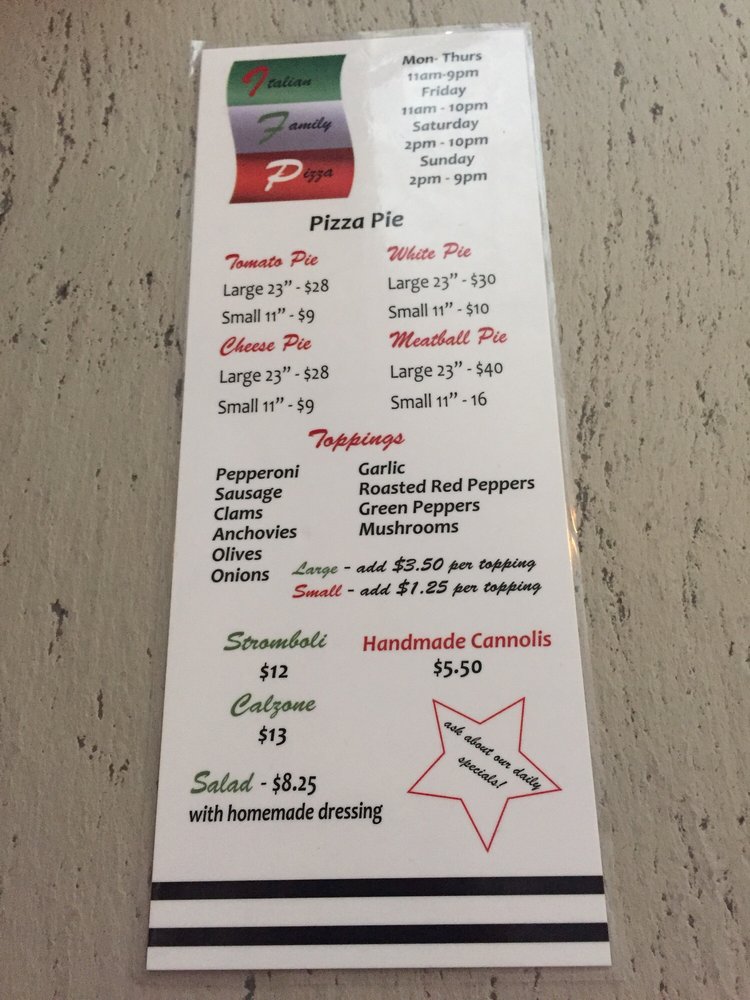 Italian
Family
Pizza
Mon- Thurs
11am-9pm
Friday
11am - 10pm
Saturday
2pm - 10pm
Sunday
2pm - 9pm
Pizza Pie
Tomato Pie
Large 23” - $28
Small 11” - $9
White Pie
Large 23” - $30
Small 11” - $10
Cheese Pie
Large 23” - $28
Small 11” - $9
Meatball Pie
Large 23” - $40
Small 11” - 16
Toppings
Pepperoni
Sausage
Clams
Anchovies
Olives
Onions
Garlic
Roasted Red Peppers
Green Peppers
Mushrooms
Large - add $3.50 per topping
Small - add $1.25 per topping
Stromboli
$12
Calzone
$13
Salad - $8.25
with homemade dressing
Handmade Cannolis
$5.50
ask about our daily
specials!